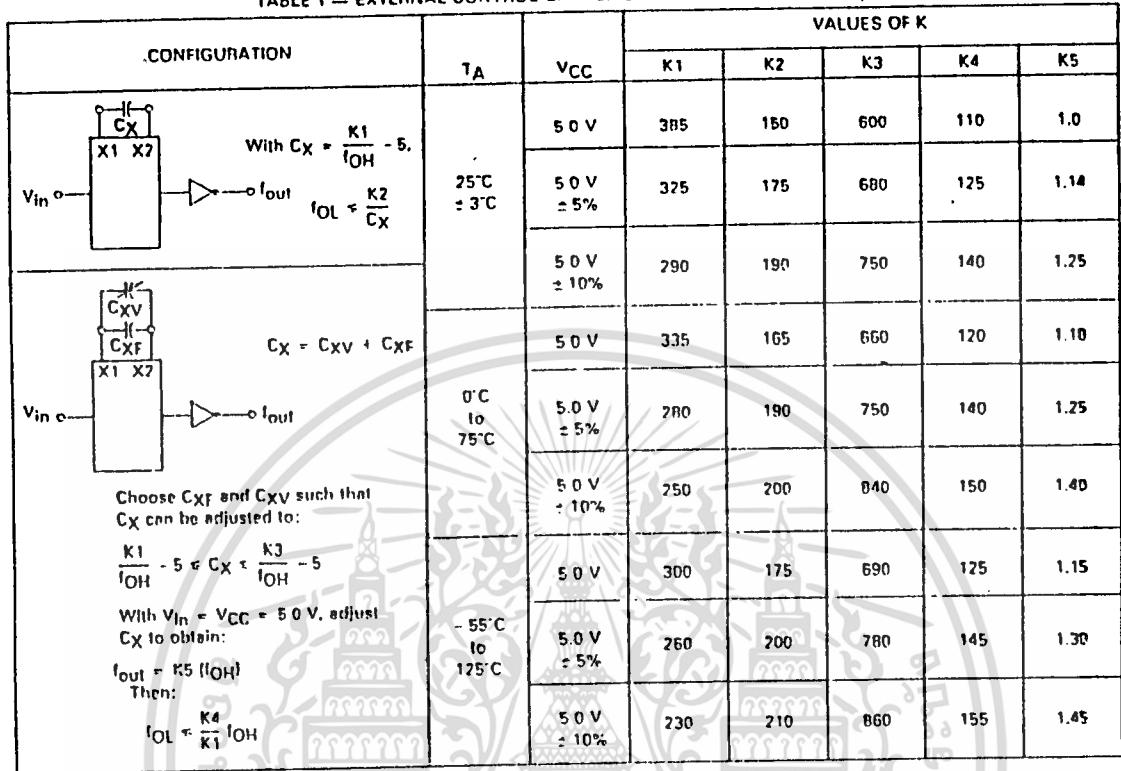 TABLE 1 — EXTERNAL CONTROL
VALUES OF K
CONFIGURATION TA VCC K1 K2 K3 K4 K5
CX
X1 X2
Vin fout
With CX = K1/fOH - 5,
fOL ≤ K2/CX
25°C
± 3°C
5.0 V 385 150 600 110 1.0
5.0 V ± 5% 325 175 680 125 1.14
5.0 V ± 10% 290 190 750 140 1.25
CXV
CXF
X1 X2
Vin fout
CX = CXV + CXF
Choose CXF and CXV such that
CX can be adjusted to:
K1/fOH - 5 ≤ CX ≤ K3/fOH - 5
With Vin = VCC = 5.0 V, adjust
CX to obtain:
fout = K5 (fOH)
Then:
fOL ≤ K4/K1 fOH
0°C
to
75°C
5.0 V 335 165 660 120 1.10
5.0 V ± 5% 280 190 750 140 1.25
5.0 V ± 10% 250 200 840 150 1.40
- 55°C
to
125°C
5.0 V 300 175 690 125 1.15
5.0 V ± 5% 260 200 780 145 1.30
5.0 V ± 10% 230 210 860 155 1.45